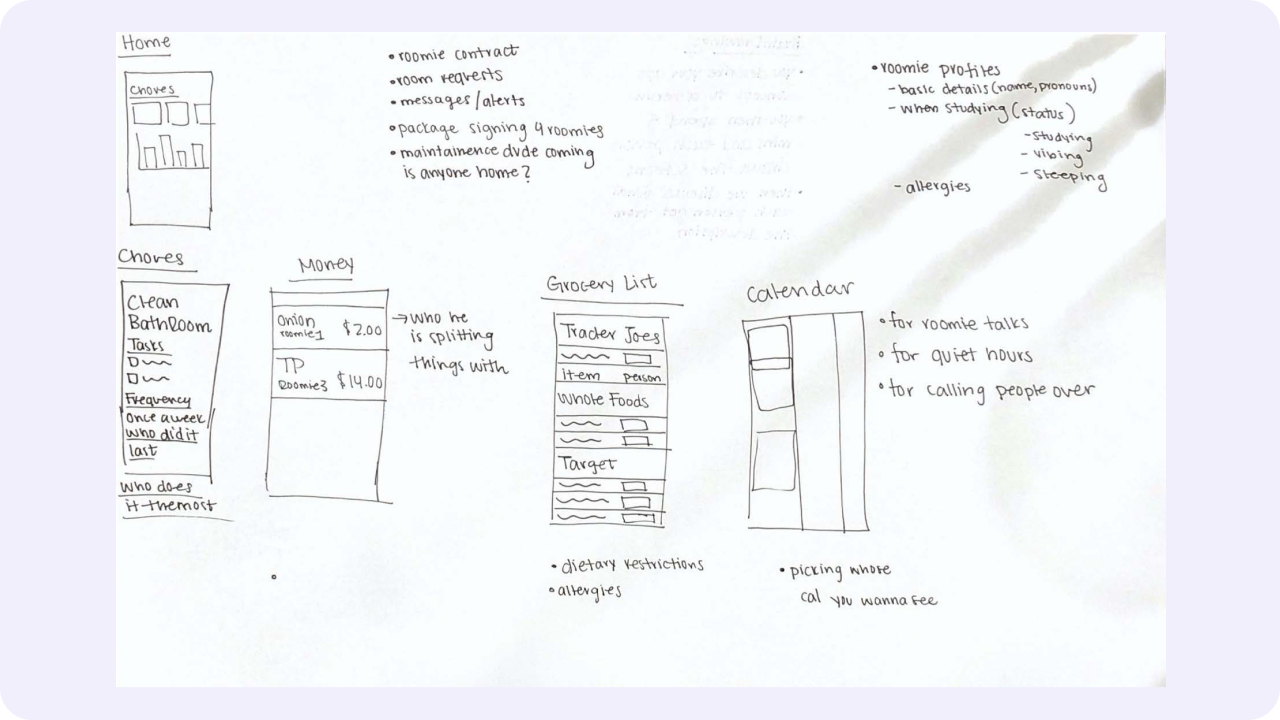 Home
chores
• roomie contract
• room requests
• messages/alerts
• package signing 4 roomies
• maintainence dude coming
is anyone home?
• roomie profiles
- basic details (name, pronouns)
- when studying (status)
- studying
- vibing
- sleeping
- allergies
Chores
Clean
BathRoom
Tasks
Frequency
once a week
who did it
last
who does
it the most
Money
onion
roomie1 $2.00
TP
Roomie3 $14.00
→ who he
is splitting
things with
Grocery List
Trader Joes
item person
Whole Foods
Target
• dietary restrictions
• allergies
Calendar
• for roomie talks
• for quiet hours
• for calling people over
• picking whose
cal you wanna see